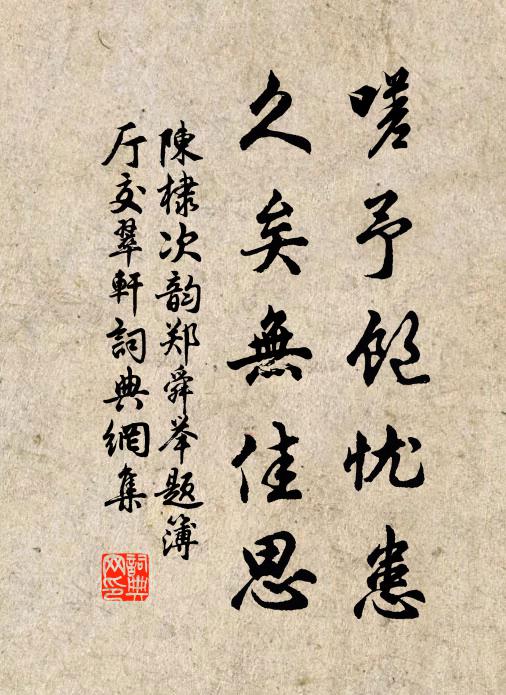 嗟予飽忧患
久矣無佳思
陳棣次韵郑舜举题簿
厅交翠軒詞典網集
詞典網印